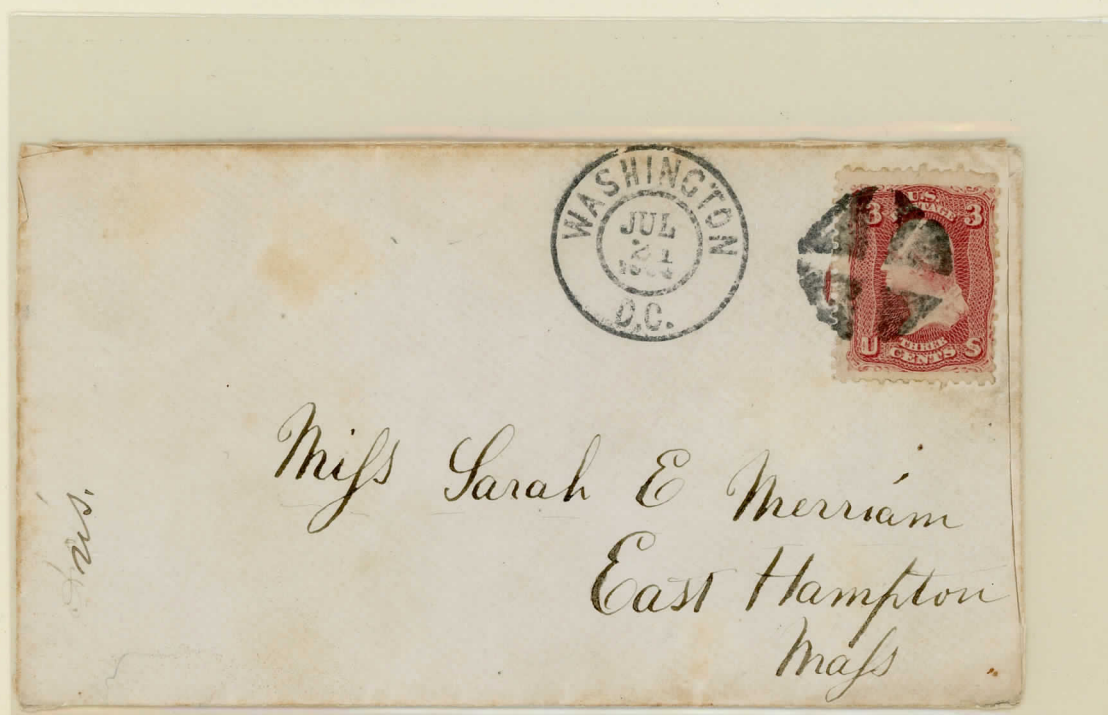 WASHINGTON
JUL
21
D.C.
3 U.S. POSTAGE 3
U THREE CENTS S
Miss Sarah E Merriam
East Hampton
Mass